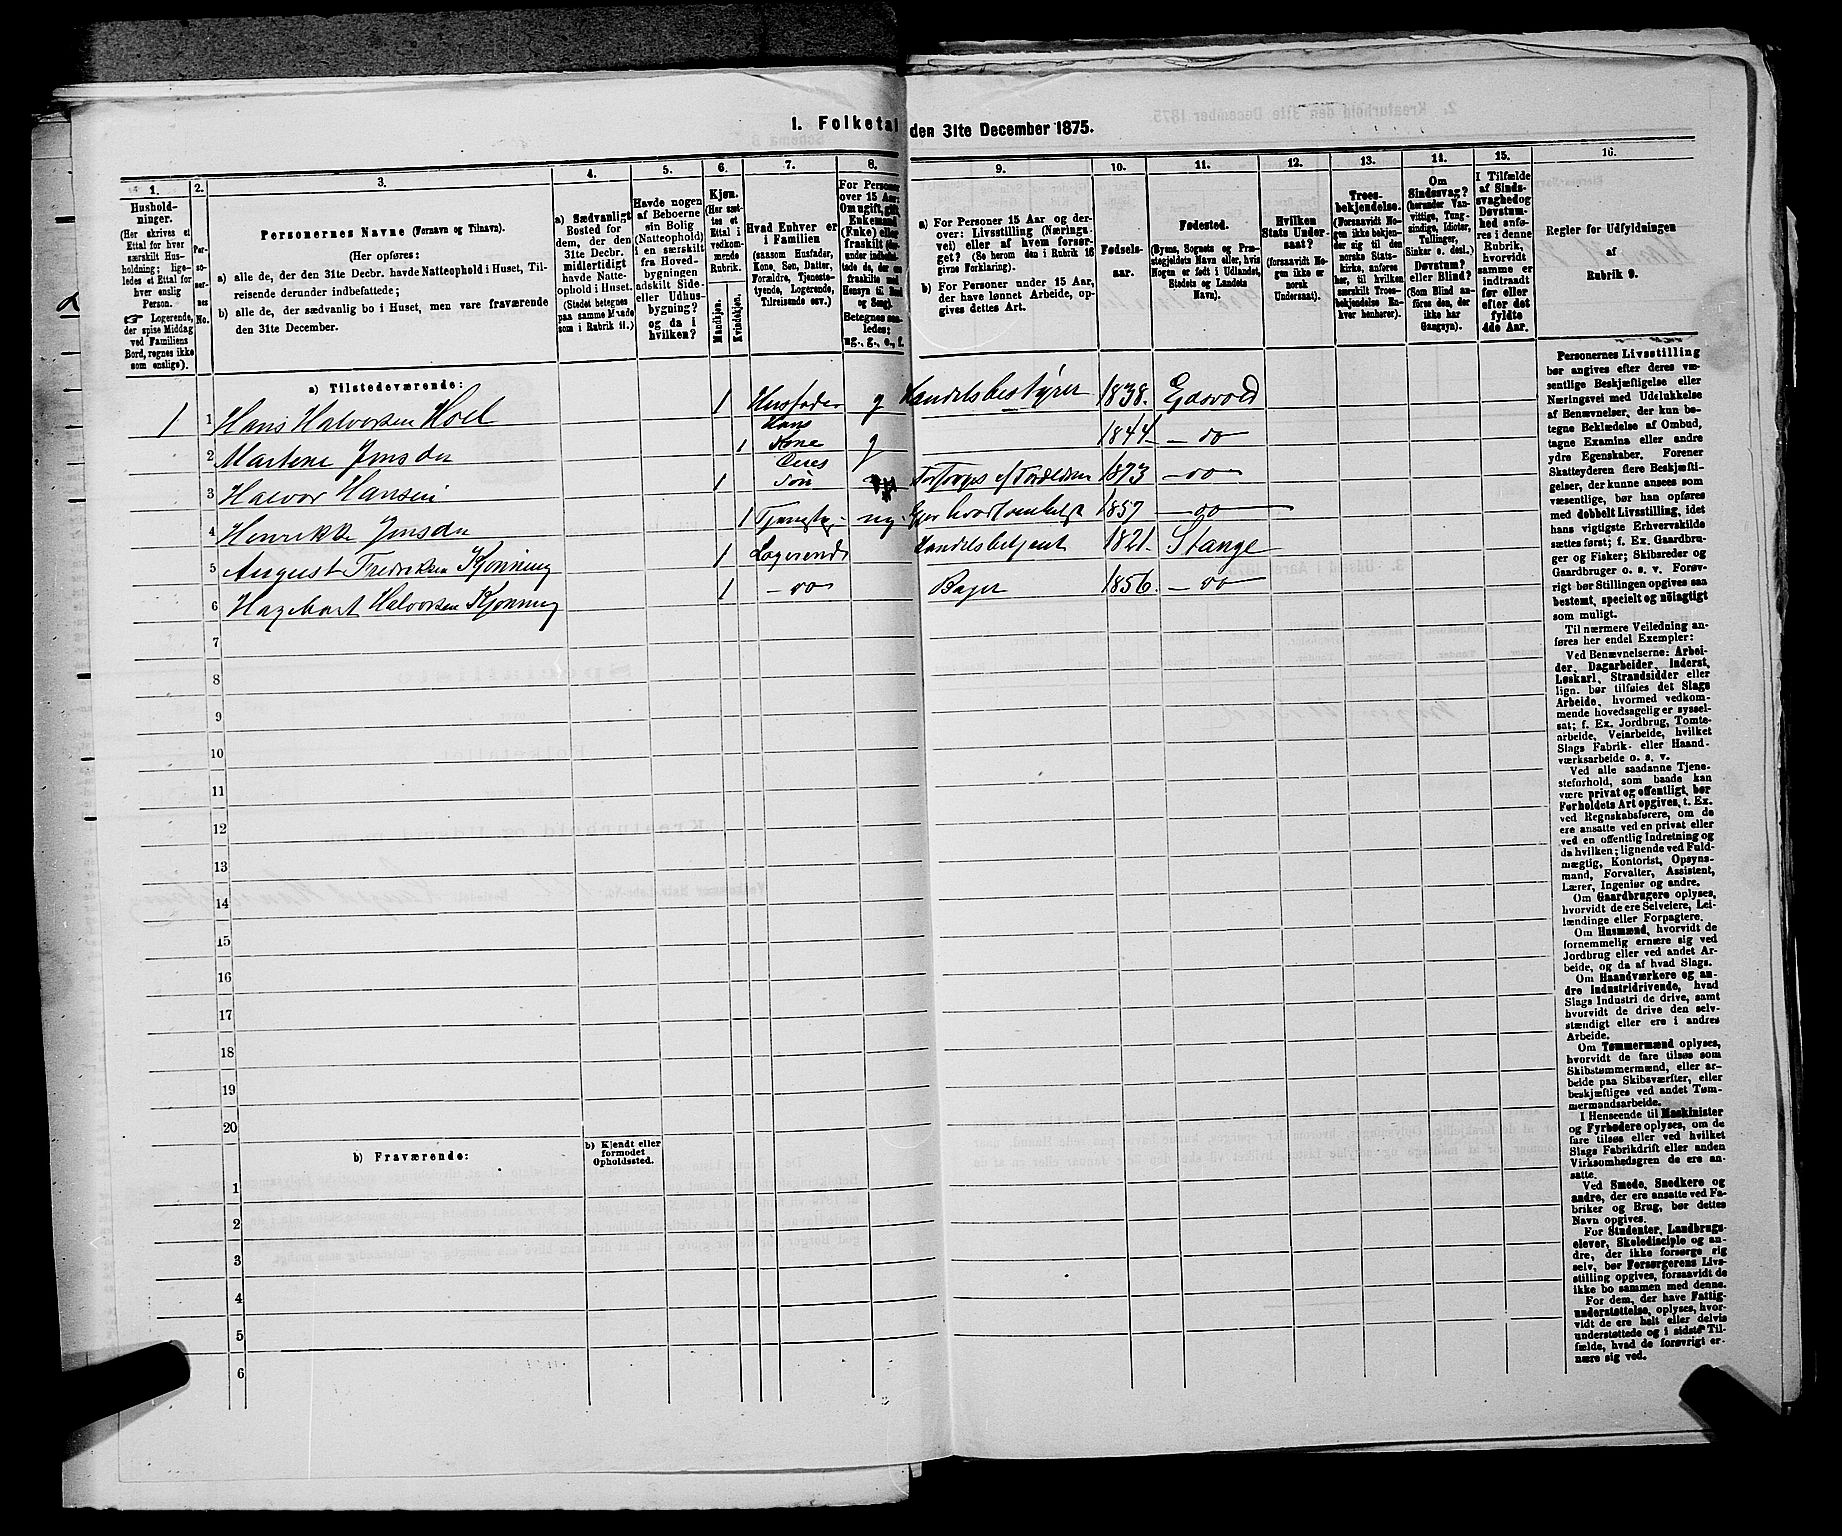 1. Folketal den 31te December 1875.
1. 2. 3. 4. 5. 6. 7. 8. 9. 10. 11. 12. 13. 14. 15. 16.
Hushold-
ninger.
(Her skrives et
Ettal for hver
særskilt Hus-
holdning; lige-
ledes et Ettal for
hver enslig
Person.
☞ Logerende,
der spise Middag
ved Familiens
Bord, regnes ikke
som enslige).
Per-
so-
ner-
nes
No.
Personernes Navne (Fornavn og Tilnavn).
(Her opføres:
a) alle de, der den 31te Decbr. havde Natteophold i Huset, Til-
reisende derunder indbefattede;
b) alle de, der sædvanlig bo i Huset, men vare fraværende
den 31te December.
a) Sædvanligt
Bosted for
dem, der den
31te Decbr.
midlertidigt
havde Natte-
ophold i Huset.
(Stedet betegnes
paa samme Maade
som i Rubrik 11.)
Havde nogen
af Beboerne
sin Bolig
(Natteophold)
i en særskilt
fra Hoved-
bygningen
adskilt Side-
eller Udhus-
bygning?
og da i
hvilken?
Kjøn.
(Her sæt-
tes et
Ettal i
vedkom-
mende
Rubrik.
Mandkjøn.
Kvindekjøn.
Hvad Enhver er
i Familien
(saasom Husfader,
Kone, Søn, Datter,
Forældre, Tjeneste-
tyende, Logerende,
Tilreisende osv.)
For Personer
over 15 Aar:
Om ugift, gift,
Enkemand
(Enke) eller
fraskilt
Betegnes saa-
ledes:
ug., g., e., f.
a) For Personer 15 Aar og der-
over: Livsstilling (Nærings-
vei) eller af hvem forsør-
get? (Se herom den i Rubrik 16
givne Forklaring).
b) For Personer under 15 Aar,
der have lønnet Arbeide, op-
gives dettes Art.
Fødsels-
aar.
Fødested.
(Byens, Sognets og Præ-
stegjeldets Navn eller, hvis
Nogen er født i Udlandet,
Stedets og Landets
Navn).
Hvilken
Stats Under-
saat?
(forsaavidt No-
gen ikke er
norsk
Undersaat).
Troes-
bekjendelse.
(Forsaavidt No-
gen ikke bekjen-
der sig til den
norske Stats-
kirke, anføres
her, til hvilken
særskilt Troes-
bekjendelse En-
hver henhører).
Om
Sindssvag?
(herunder Van-
vittige, Tung-
sindige, Idioter,
Tullinger,
Sinker o. desl.)
Døvstum?
eller Blind?
(Som Blind an-
føres den, der
ikke har
Gangsyn).
I Tilfælde
af Sinds-
svaghed og
Døvstum-
hed anfø-
res i denne
Rubrik,
hvorvidt
samme er
indtraadt
før eller
efter det
fyldte
4de Aar.
Regler for Udfyldningen
af
Rubrik 9.
a) Tilstedeværende:
1 1 Hans Halvorsen Hoel 1 Husfader g Handelsbestyrer 1838. Eidsvold
2 Martene Jensdr 1 Hans Kone g 1844 — do —
3 Halvor Hansen 1 Deres Søn 1873 — do —
4 Henrikke Jensdr 1 ug. 1857 — do —
5 August Fredriksen Kjønning 1 Logerende Handelsbetjent 1821. Stange
6 Hagebart Halvorsen Kjønning 1 — do Bager 1856. — do —
7
8
9
10
11
12
13
14
15
16
17
18
19
20
b) Fraværende:
b) Kjendt eller
formodet
Opholdssted.
1
2
3
4
5
6
Personernes Livsstilling
bør angives efter deres væ-
sentlige Beskjæftigelse eller
Næringsvei med Udelukkelse
af Benævnelser, der kun be-
tegne Beklædelse af Ombud,
tagne Examina eller andre
ydre Egenskaber. Forener
Skatteyderen flere Beskjæfti-
gelser, der kunne ansees som
væsentlige, bør han opføres
med dobbelt Livsstilling, idet
hans vigtigste Erhvervskilde
sættes først; f. Ex. Gaardbru-
ger og Fisker; Skibsreder og
Gaardbruger o. s. v. Forøv-
rigt bør Stillingen opgives saa
bestemt, specielt og nöiagtigt
som muligt.
Til nærmere Veiledning an-
føres her endel Exempler:
Ved Benævnelserne: Arbei-
der, Dagarbeider, Inderst,
Løskarl, Strandsidder eller
lign. bør tilføies det Slags
Arbeide, hvormed vedkom-
mende hovedsagelig er syssel-
sat; f. Ex. Jordbrug, Tomte-
arbeide, Veiarbeide, hvilket
Slags Fabrik- eller Haand-
værksarbeide o. s. v.
Ved alle saadanne Tjene-
steforhold, som baade kan
være privat og offentligt, bør
Forholdets Art opgives, t. Ex.
ved Regnskabsførere, om de
ere ansatte ved en privat eller
ved en offentlig Indretning og
da hvilken; lignende ved Fuld-
mægtig, Kontorist, Opsyns-
mand, Forvalter, Assistent,
Lærer, Ingeniør og andre.
Om Gaardbrugere oplyses,
hvorvidt de ere Selveiere, Lei-
lændinge eller Forpagtere.
Om Husmænd, hvorvidt de
fornemmelig ernære sig ved
Jordbrug eller ved andet Ar-
beide, og da af hvad Slags.
Om Haandværkere og an-
dre Industridrivende, hvad
Slags Industri de drive, samt
hvorvidt de drive den selv-
stændigt eller ere i andres
Arbeide.
Om Tømmermænd oplyses,
hvorvidt de fare tilsøs som
Skibstømmermænd, eller ar-
beide paa Skibsværfter, eller
beskjæftiges ved andet Tøm-
mermandsarbeide.
I Henseende til Maskinister
og Fyrbødere oplyses, om de
fare tilsøs eller ved hvilket
Slags Fabrikdrift eller anden
Virksomhedsgren de ere an-
satte.
Ved Smede, Snedkere og
andre, der ere ansatte ved Fa-
briker og Brug, bør dettes
Navn opgives.
For Studenter, Landbrugs-
elever, Skoledisciple og an-
dre, der ikke forsørge sig
selv, bør Forsørgerens Livs-
stilling opgives, forsaavidt de
ikke bo sammen med denne.
For dem, der have Fattig-
understøttelse, oplyses, hvor-
vidt de ere helt eller delvis
understøttede og i sidste Til-
fælde, hvad de forøvrigt er-
nære sig ved.